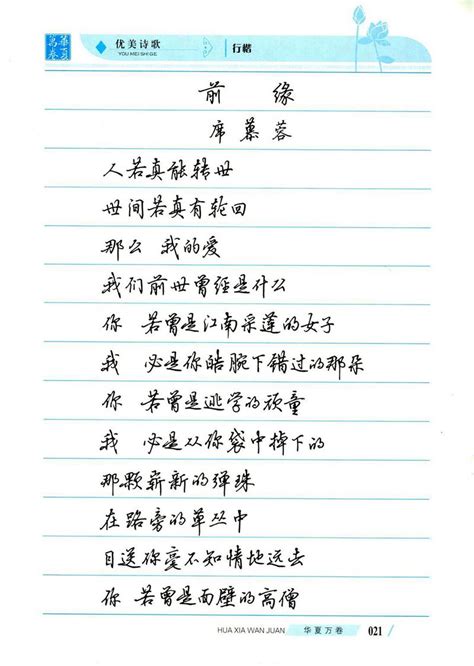 华夏
万卷
优美诗歌
YOU MEI SHI GE
行楷
前 缘
席慕蓉
人若真能转世
世间若真有轮回
那么 我的爱
我们前世曾经是什么
你 若曾是江南采莲的女子
我 必是你皓腕下错过的那朵
你 若曾是逃学的顽童
我 必是从你袋中掉下的
那颗崭新的弹珠
在路旁的草丛中
目送你毫不知情地远去
你 若曾是面壁的高僧
HUA XIA WAN JUAN
华夏万卷
021